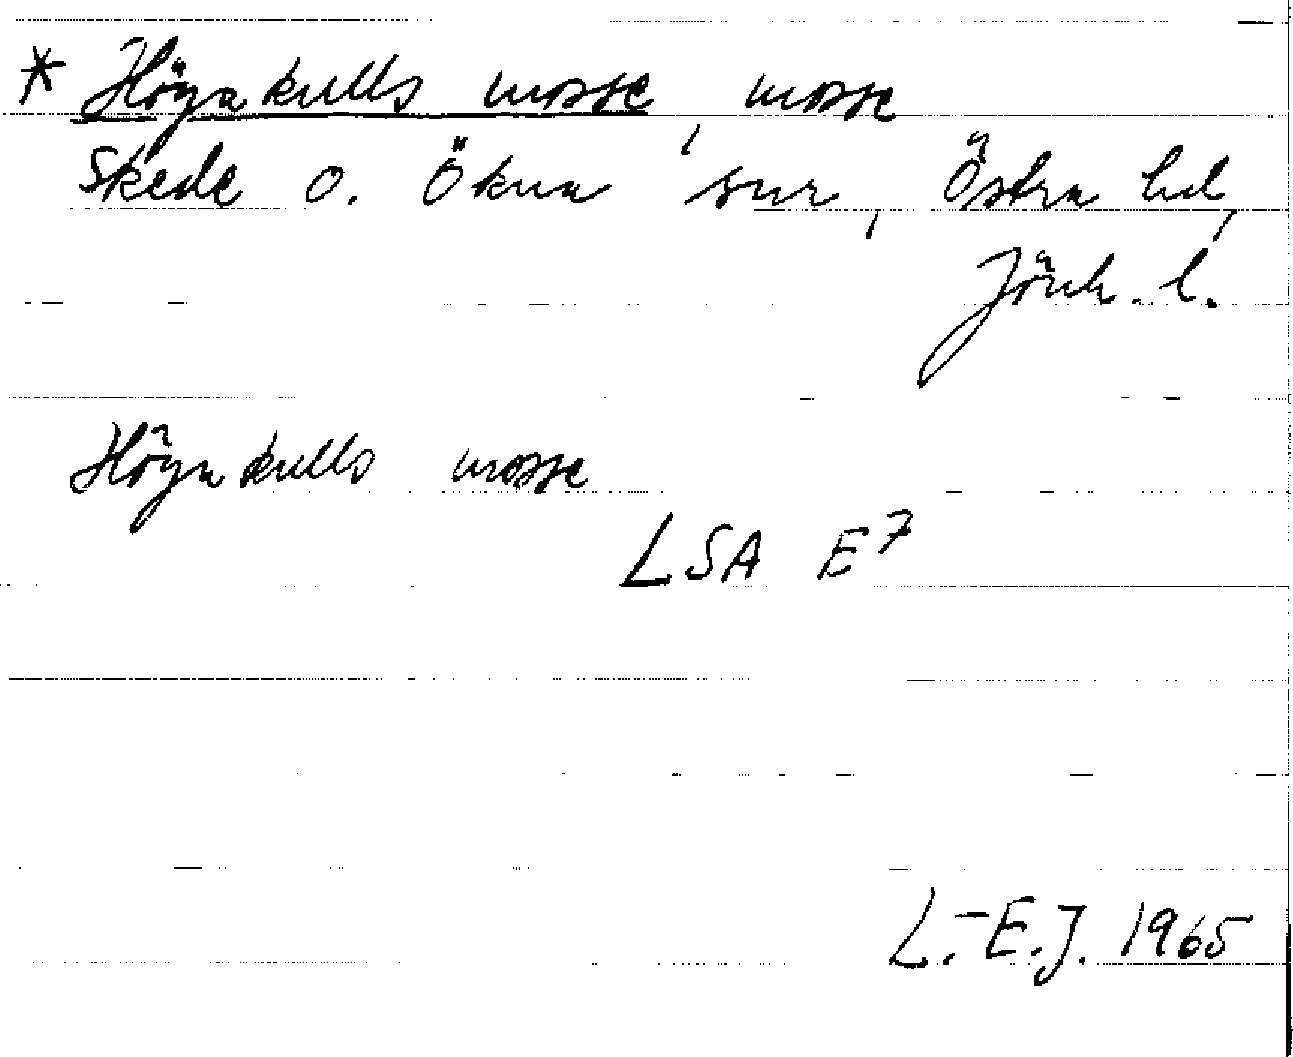 * Högakulls mosse, mosse
Skede o. Ökna snr, Östra hd,
Jönk. l.
Högakulls mosse
LSA E7
L.-E.J. 1965